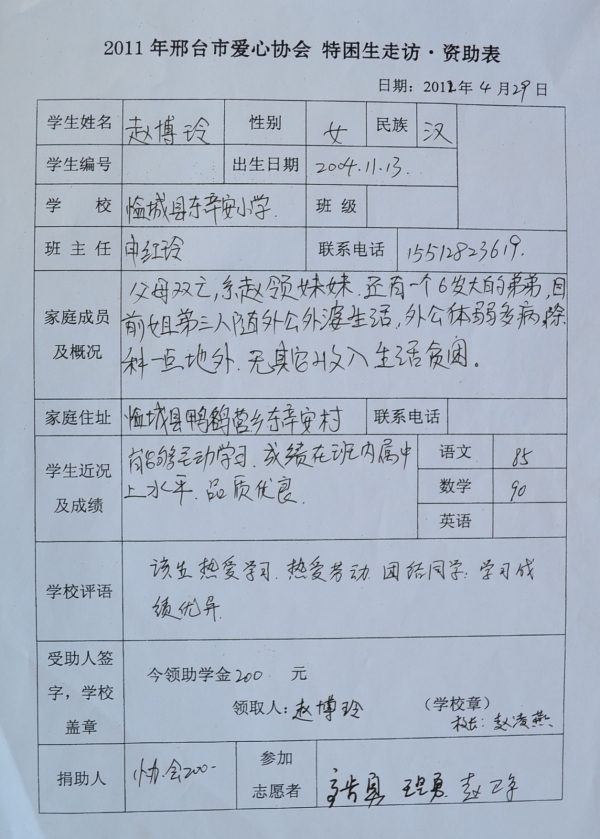 2011年邢台市爱心协会 特困生走访·资助表
日期：2012年4月29日
学生姓名 赵博玲 性别 女 民族 汉
学生编号 出生日期 2004.11.13.
学 校 临城县东辛安小学. 班 级
班 主 任 申红玲 联系电话 15512823619.
家庭成员及概况
父母双亡,系赵领妹妹.还有一个6岁大的弟弟,目
前姐弟三人随外公外婆生活,外公体弱多病,除
种一点地外.无其它收入 生活贫困。
家庭住址 临城县鸭鸽营乡东辛安村 联系电话
学生近况及成绩
能够主动学习.成绩在班内属中
上水平.品质优良.
语文 85
数学 90
英语
学校评语
该生热爱学习.热爱劳动.团结同学.学习成
绩优异.
受助人签字，学校盖章
今领助学金200 元
领取人：赵博玲 （学校章）
校长：赵凌燕
捐助人 协会200- 参加志愿者 赵